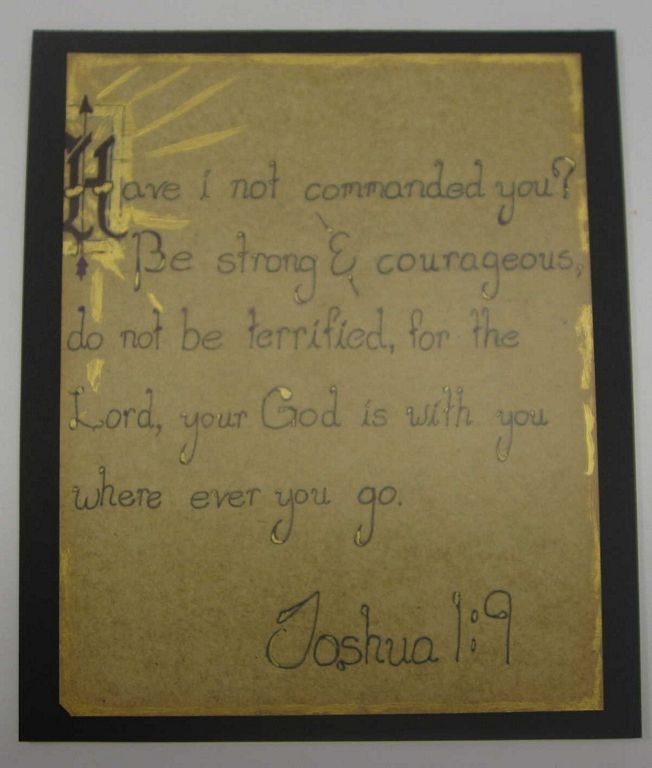 Have i not commanded you?
Be strong & courageous,
do not be terrified, for the
Lord, your God is with you
where ever you go.
Joshua 1:9